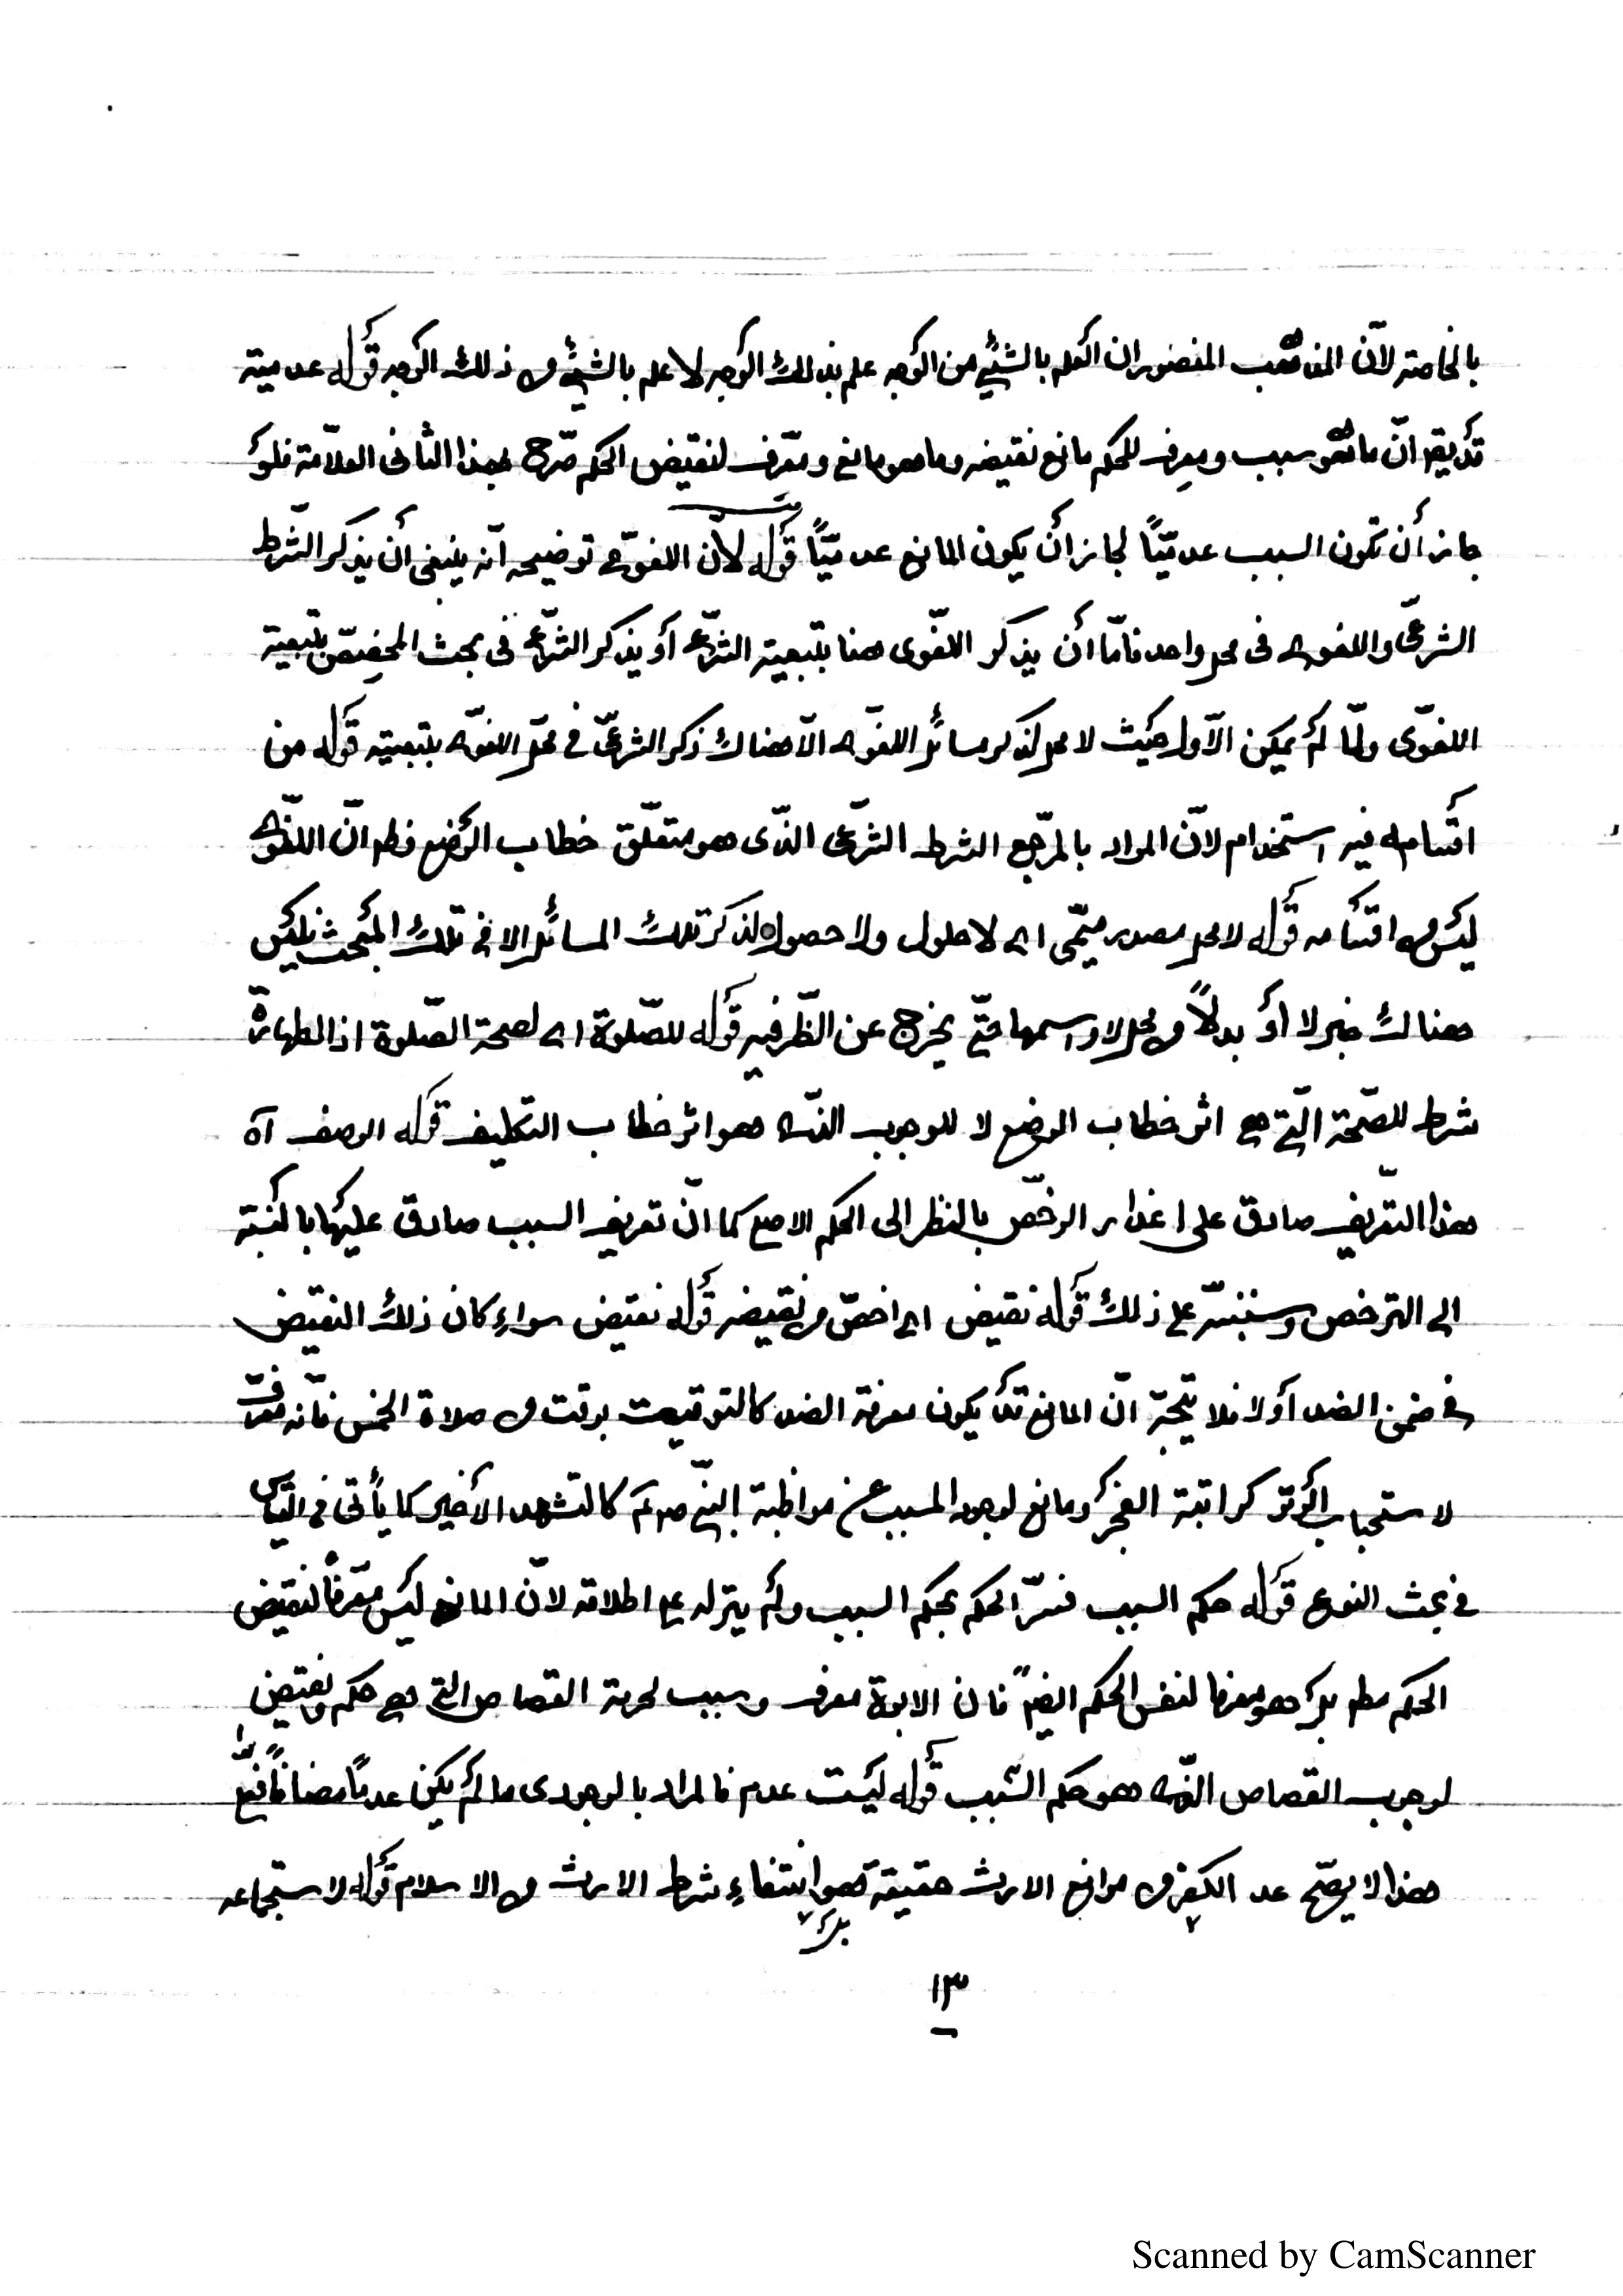 بالخاصة لأنّ المذهب المنصور ان العلم بالشئ من الوجه علم بذلك الوجه لا علم بالشئ من ذلك الوجه قوله عدمية
قد يقو انّ ما هو سبب ومعرف للحكم مانع نقيضه وما هو مانع ومعرّف لنقيض الحكم صرّح بهذا الثانى العلاّمة فلو
جاز أن تكون السبب عدميّاً لجاز أن يكون المانع عدميّاً قوله لأن اللغوىّ توضيحه انّه ينبغى أن يذكر الشّرط
الشرعىّ واللغوى فى محل واحد فامّا أن يذكر اللغّوى هنا بتبعية الشرّعى أو يذكر الشرّعى فى بحث المخصّص بتبعية
اللغوّى ولمّا لم يمكن الأوّل حيث لا محل لذكر مسائل اللغوى الاّ هناك ذكر الشرعىّ فى محل اللغوى بتبعيته قوله من
اقسامه فيه استخدام لأنّ المراد بالمرّجع الشرط الشرّعى الذّى هو متعلّق خطاب الوضع فظهر انّ اللغوى
ليس من اقسامه قوله لا محل مصدر ميمّى اى لا حلول ولا حصول لذكر تلك المسائل الا فى تلك المبحث فليس
هناك خبر لا أو بدلاً من محل لا واسمها حتىّ يخرج عن الظّرفيه قوله للصّلوة اى لصحة الصّلوة اذ الطهارة
شرط للصّحة الّتى هى اثر خطاب الوضع لا للوجوب الذّى هو اثر خطاب التكليف قوله الوصف آه
هذا التعّريف صادق على اعذار الرخّص بالنظر الى الحكم الاصلى كما انّ تعريف السبب صادق عليها بالنسبة
الى الترخص وسننبّه على ذلك قوله نقيض اى اخصّ من نقيضه قوله نقيض سواء كان ذلك النقيض
فى ضمن الضد أو لا فلا يتّجه انّ المانع قد يكون معرفة الضد كالتوقيت بوقت من صلاة الخمس فانّه معرّف
لاستحباب الوتر كراتبة الفجر ومانع لوجوبه المسبب عن مواظبة النبىّ صلعم كالتشهد الأخير كما يأتى فى القياس
فى بحث النوع قوله حكم السبب فسّر الحكم بحكم السبب ولم يتركه على اطلاقه لأنّ المانع ليس معّرفاً لنقيض
الحكم مطلقا بل هو معرفا لنفس الحكم ايضاً فان الابوة معرف وسبب لحرمة القصاص التى هى حكم ونقيض
لوجوب القصاص الذّى هو حكم السّبب قوله ليست عدم فالمراد بالوجودى ما لم يكن عدماً مضافاً فعلى
هذا لا يصحّ عد الكفر من موانع الارث حقيقة بل هو انتفاء شرط الارث من الاسلام قوله لاستجماعه
١٣
Scanned by CamScanner